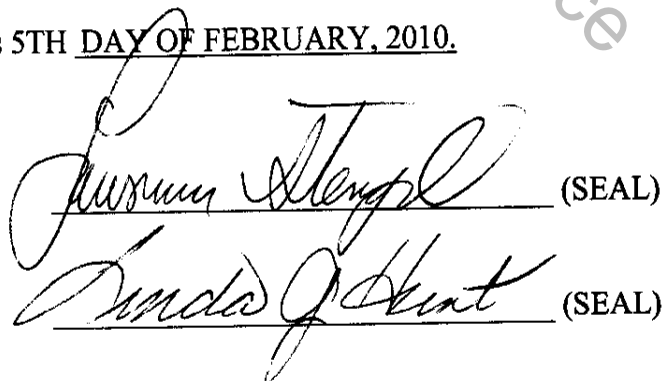 5TH DAY OF FEBRUARY, 2010.
Stengel (SEAL)
Linda J Hunt (SEAL)